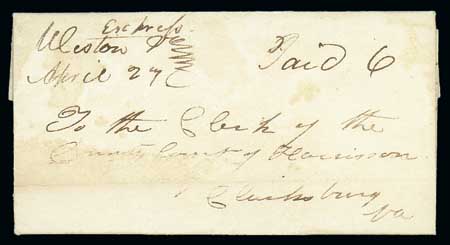 Express
Weston Va
April 27 Paid 6
To the Clerk of the
County Court of Harrison
Clarksburg
Va